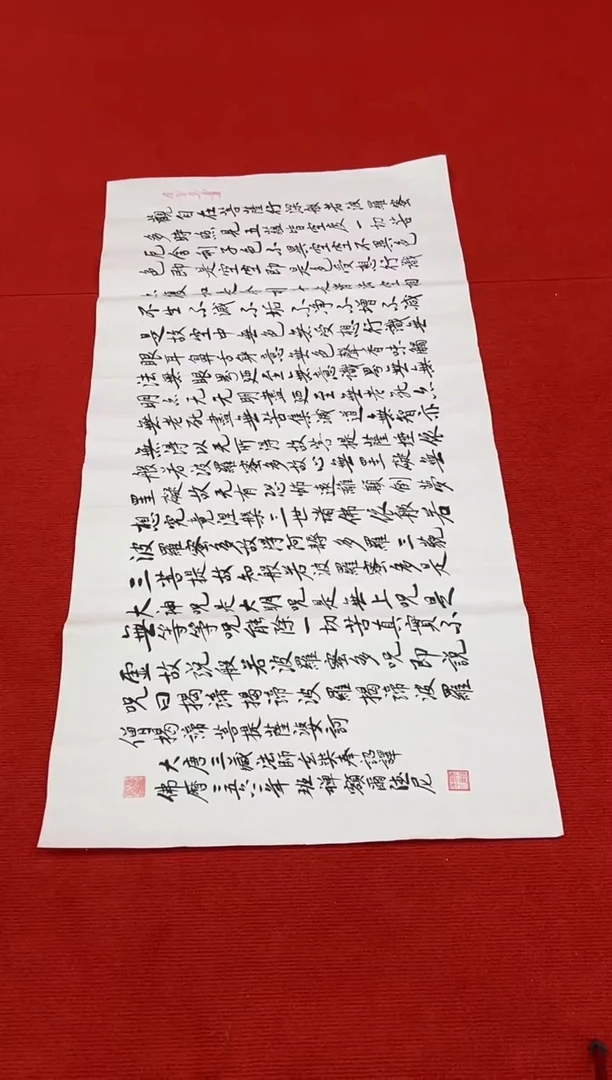 觀自在菩薩行深般若波羅蜜
多時照見五蘊皆空度一切苦
厄舍利子色不異空空不異色
色即是空空即是色受想行識
亦復如是舍利子是諸法空相
不生不滅不垢不淨不增不減
是故空中無色無受想行識無
眼耳鼻舌身意無色聲香味觸
法無眼界廼至無意識界無無
明亦无无明盡廼至無老死亦
無老死盡無苦集滅道無智亦
無淂以无所淂故菩提薩埵依
般若波羅蜜多故心無罣礙無
罣礙故无有恐怖遠離顛倒夢
想究竟涅槃三世諸佛依般若
波羅蜜多故淂阿耨多羅三藐
三菩提故知般若波羅蜜多是
大神呪是大明呪是無上呪是
無等等呪能除一切苦真實不
虛故說般若波羅蜜多呪即說
呪曰揭諦揭諦波羅揭諦波羅
僧揭諦菩提薩婆訶
大唐三藏法師玄奘奉詔譯
佛曆二五六二年 班禪額爾德尼